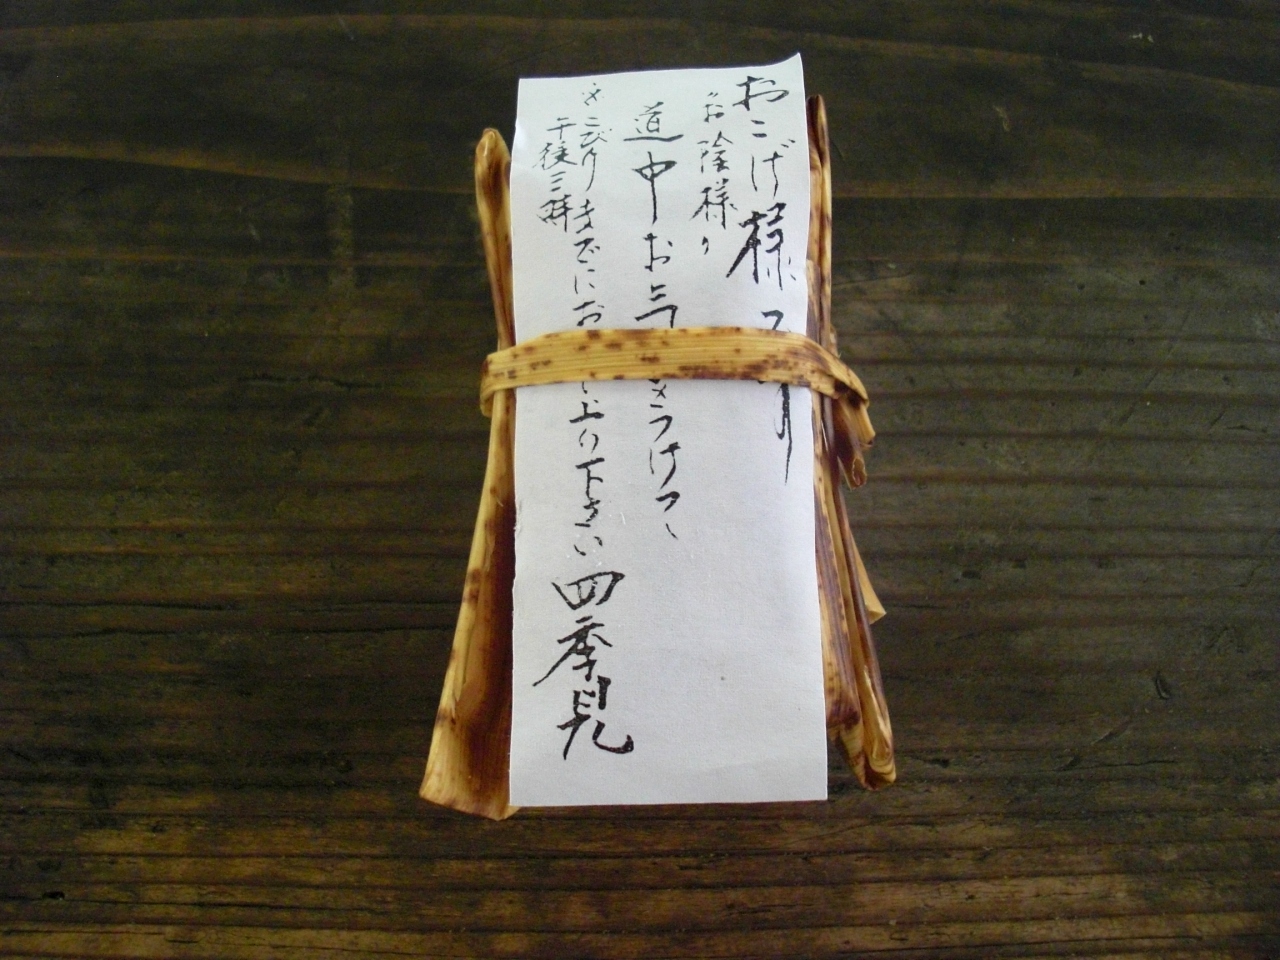 おこげ様
お陰様り
道中お気をつけて
※こびり
午後三時
までにお召し上り下さい
四季見